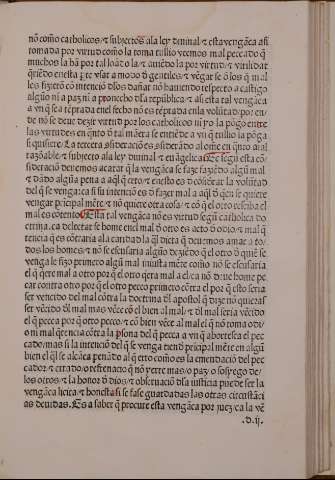 nõ como catholicos ⁊ subjectos ala ley diuinal ⁊ esta vengãça asi
tomada por virtud como la toma tullio veemos mal peccado q̃
muchos la hã por tal loãdola ⁊ auiẽdola por virtud ⁊ virilidad
q̃riẽdo en esta vsar a modo d̃ gentiles ⁊ vẽgarse õ los q̃ mal
les fiziero cõ intenciõ dlos dañar nõ hauiendo respecto a castigo
algũo ni a paz ni a prouecho dla republica ⁊ asi esta tal vengãça
a vn q̃ sea reprada enel fecho nõ es represa enla volũtad por
de nõ se deue dezir virtud por los catholicos ni põ la põga entre
las virtudes en q̃nto d̃ tal mãera se entiẽde a vn q̃ tullio la põga
si quisiere La tercera cõsideraciõ es cõsiderãdo al ome en q̃nto aial
razõable ⁊ subjecto ala ley diuinal ⁊ euãgelica E segũ esta cõ
sideraciõ deuemos acatar q̃ la vengãça se faze fazẽdo algũ mal
⁊ dãdo algũa pena a aq̃l q̃ erro ⁊ en esto es d̃ cõsiderar la volũtad
del q̃ se vengaca si su intenciõ es d̃ fazer mal a aq̃l d̃ q̃en se quiere
vengar pricipal mẽte ⁊ nõ quiere otra cosa ⁊ cõ q̃ el otro resciba el
mal es cõtento Esta tal vengãça nõ es virtud segũ catholica do
ctrina ca delectar se home enel mal d̃ otro es acto d̃ odio ⁊ mal q̃
tencia q̃ es cõtraria ala caridad la q̃l dicta q̃ deuemos amar a to
dos los homes ⁊ nõ se escusaria algũo diziẽdo q̃ el otro d̃ quiẽ se
venga le fizo primero algũ mal iniusta mẽte como nõ se escusaria
el q̃ q̃ere mal a otro por q̃ el otro q̃era mal a el ca nõ deue home pe
car contra otro por q̃ el otro pecco primero cõtra el por q̃ esto seria
ser vencido del mal cõtra la doctrina dl apostol q̃ dize nõ quieras
ser vẽcido dl mal mas vẽce cõ el bien al mal ⁊ dl mal seria vẽcido
el q̃ pecca por q̃ otro pecco ⁊ cõ bien vẽce al mal el q̃ nõ toma odi
o ni mal q̃rencia cõtra la psona del q̃ pecca a vn q̃ aborresca el pec
cado mas si la intenciõ del q̃ se venga tiend̃ pricipal mẽte en algũ
bien el q̃l se alcãça penãdo al q̃ erro como es la emendaciõ del pec
cador ⁊ errado o refrenaciõ q̃ nõ yerre mas o paz o sosyego de
los otros ⁊ la honor d̃ dios ⁊ obseruaciõ dla iusticia puede ser la
vengãça licita ⁊ honesta si se fase guardadas las otras circustãci
as deuidas. Es a saber q̃ procure esta vengãça por juez ca la vẽ
.d.ij.